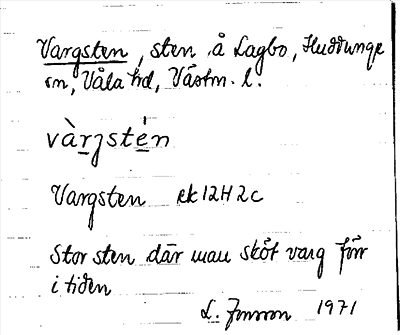 Vargsten, sten å Lagbo, Huddunge
sn, Våla hd, Västm. l.
vàrgstén
Vargsten ek 12H 2c
Stor sten där man sköt varg förr
i tiden
L. Jonsson 1971